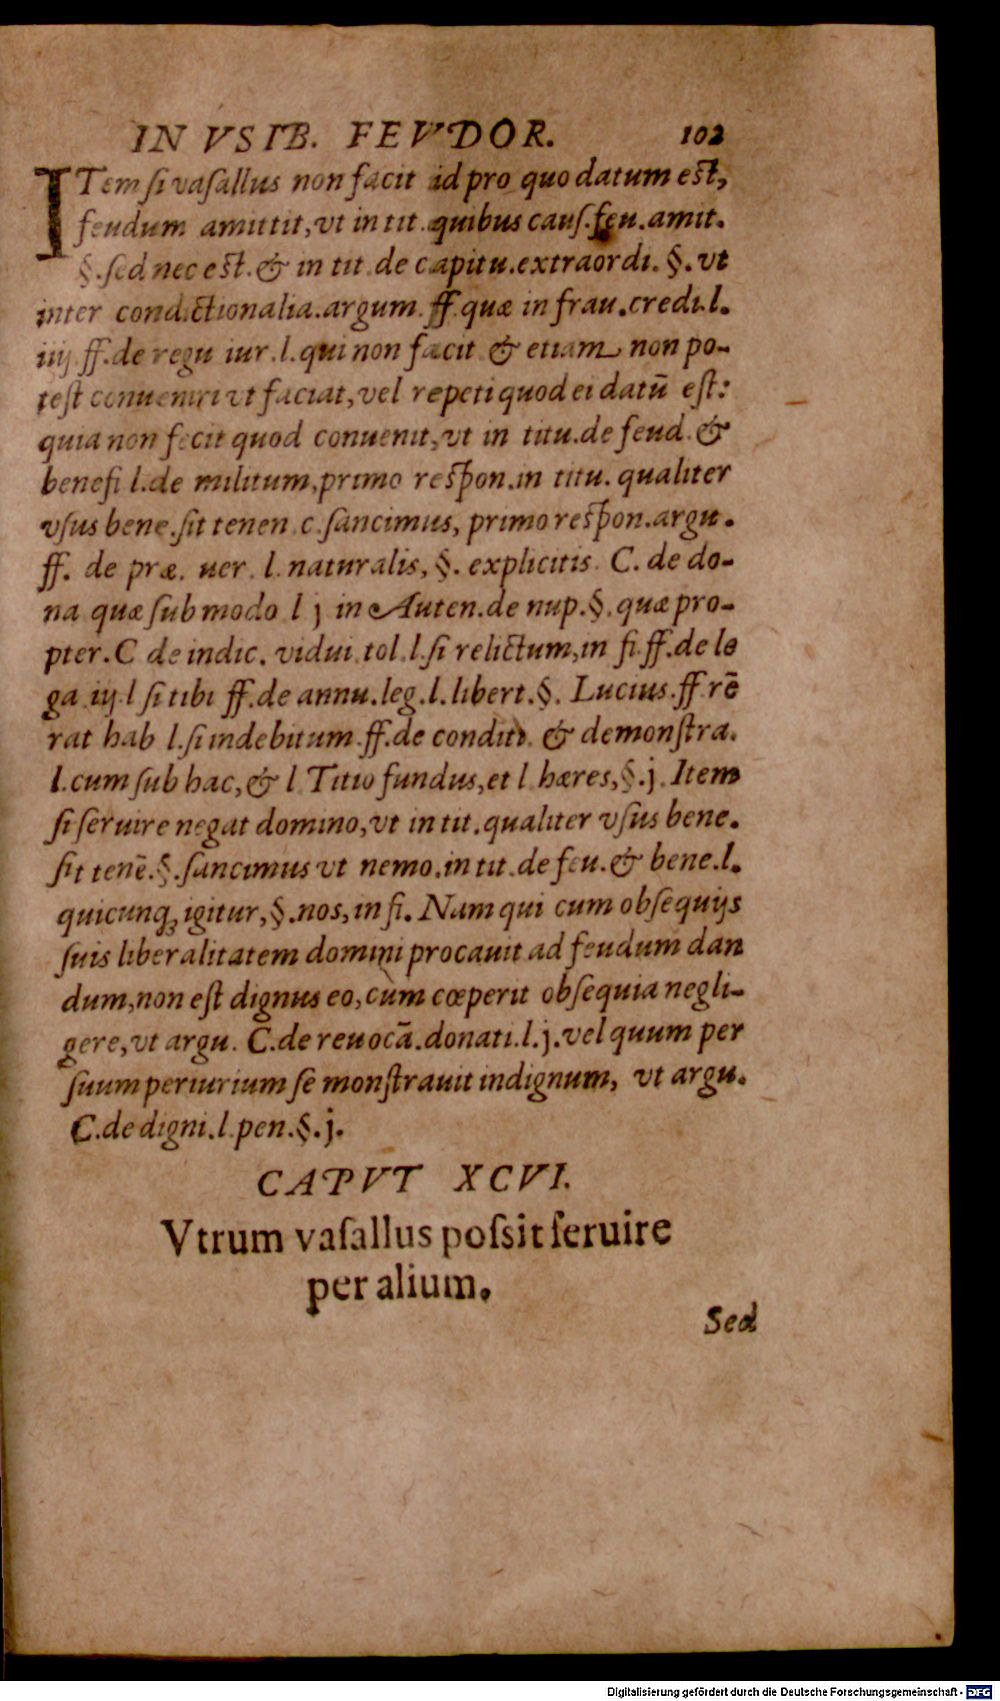 IN VSIB. FEVDOR. 102
ITem ſi vaſallus non facit id pro quo datum eſt,
feudum amittit, vt in tit. quibus cauſ. feu. amit.
§. ſed nec eſt. & in tit. de capitu. extraordi. §. vt
inter condictionalia. argum. ff. quæ in frau. credi. l.
iiij ff. de regu iur. l. qui non facit & etiam non po-
teſt conueniri vt faciat, vel repeti quod ei datū eſt:
quia non fecit quod conuenit, vt in titu. de feud. &
benefi l. de militum, primo reſpon. in titu. qualiter
vſus bene. ſit tenen. c. ſancimus, primo reſpon. argu.
ff. de præ. uer. l. naturalis, §. explicitis. C. de do-
na quæ ſub modo l j in Auten. de nup. §. quæ pro-
pter. C de indic. vidui. tol. l. ſi relictum, in fi. ff. de le
ga iij. l ſi tibi ff. de annu. leg. l. libert. §. Lucius. ff rē
rat hab l. ſi indebitum. ff. de conditi. & demonſtra.
l. cum ſub hac, & l Titio fundus, et l hæres, §. j. Item
ſi ſeruire negat domino, vt in tit. qualiter vſus bene.
ſit tenē. §. ſancimus vt nemo. in tit. de feu. & bene. l.
quicunq; igitur, §. nos, in fi. Nam qui cum obſequijs
ſuis liberalitatem domini procauit ad feudum dan
dum, non eſt dignus eo, cùm cœperit obſequia negli-
gere, vt argu. C. de reuocā. donati. l. j. vel quum per
ſuum periurium ſe monſtrauit indignum, vt argu.
C. de digni. l. pen. §. j.
CAPVT XCVI.
Vtrum vaſallus poſsit ſeruire
per alium.
Sed
Digitalisierung gefördert durch die Deutsche Forschungsgemeinschaft - DFG